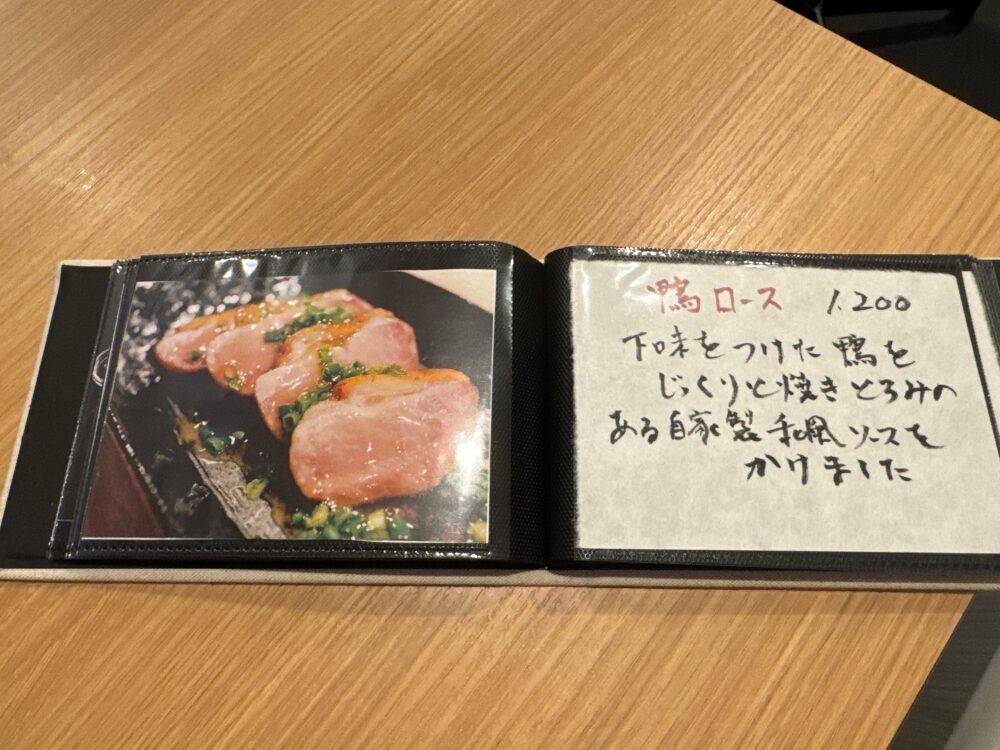 鴨ロース 1.200
下味をつけた鴨を
じっくりと焼きとろみの
ある自家製和風ソースを
かけました